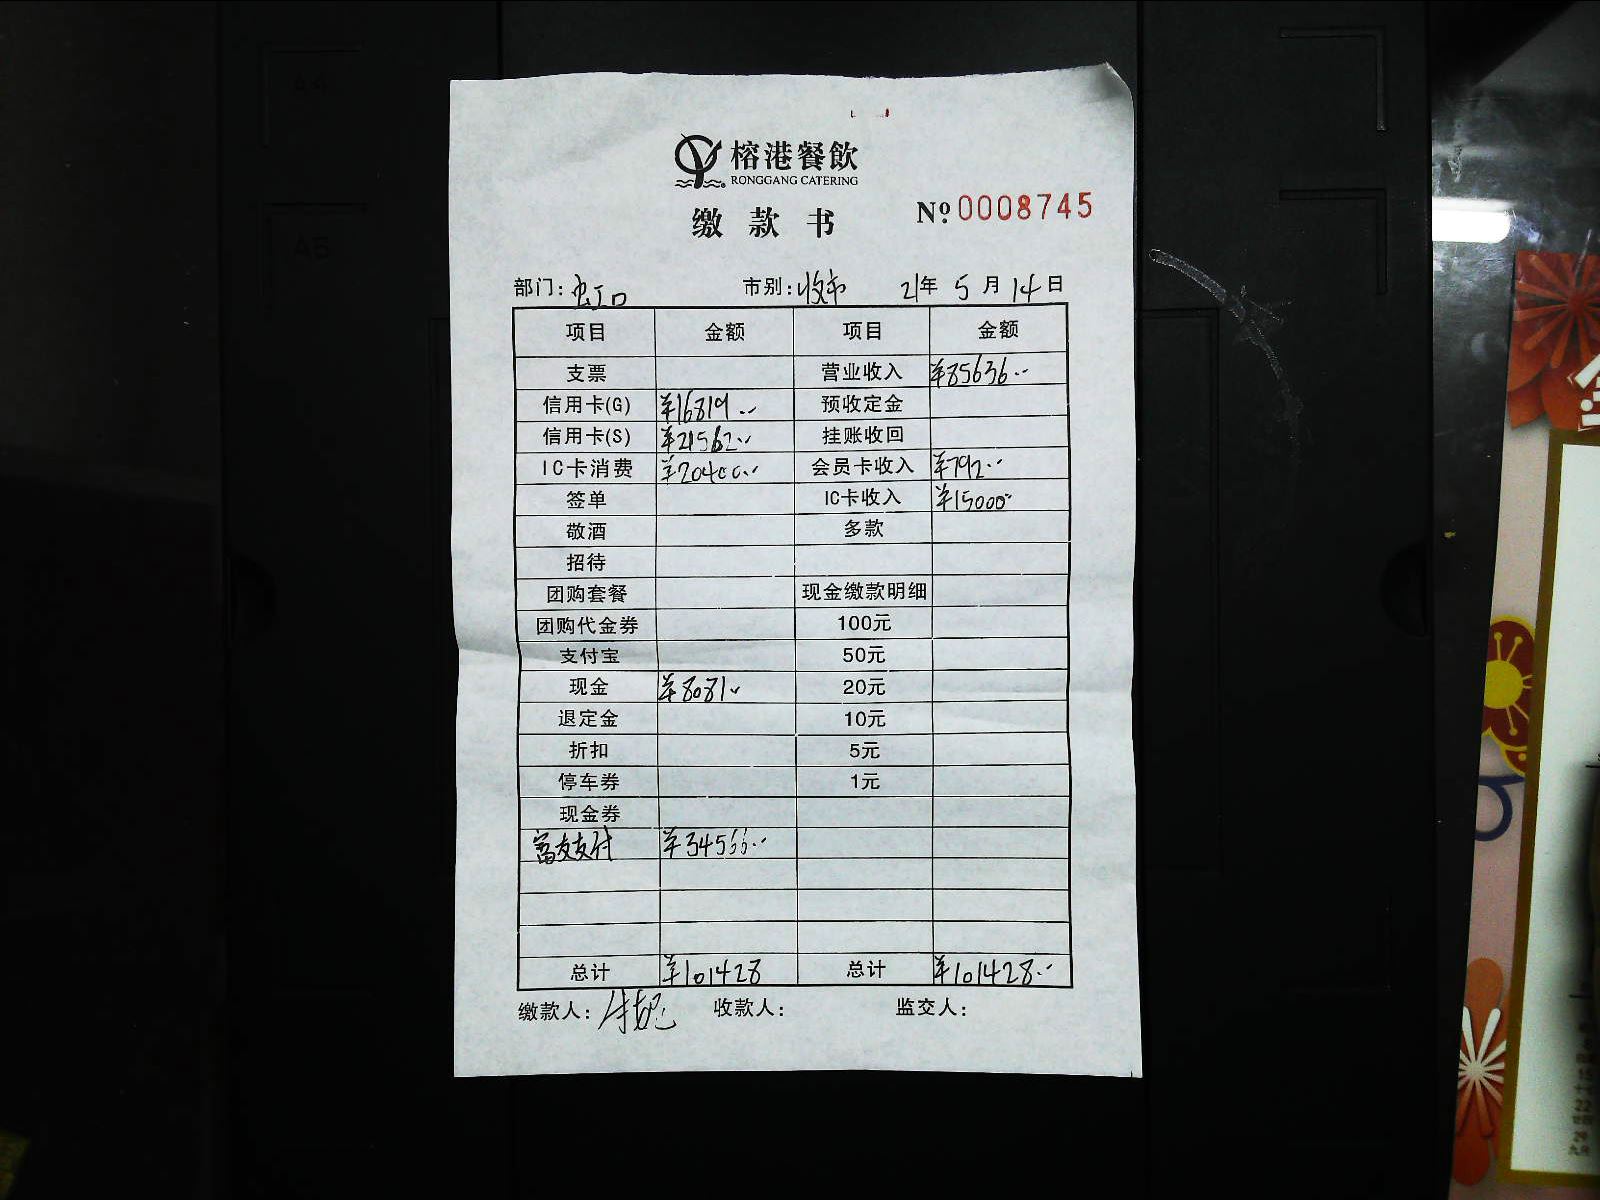 榕港餐飲
RONGGANG CATERING
缴款书 №0008745
部门:虹口 市别:收市 21年 5月 14日
项目 金额 项目 金额
支票 营业收入 ¥85636..
信用卡(G) ¥16819.. 预收定金
信用卡(S) ¥21562.. 挂账收回
IC卡消费 ¥20400.. 会员卡收入 ¥792..
签单 IC卡收入 ¥15000..
敬酒 多款
招待
团购套餐 现金缴款明细
团购代金券 100元
支付宝 50元
现金 ¥8081.. 20元
退定金 10元
折扣 5元
停车券 1元
现金券
富友支付 ¥34566..
总计 ¥101428 总计 ¥101428..
缴款人: 收款人: 监交人:
A5